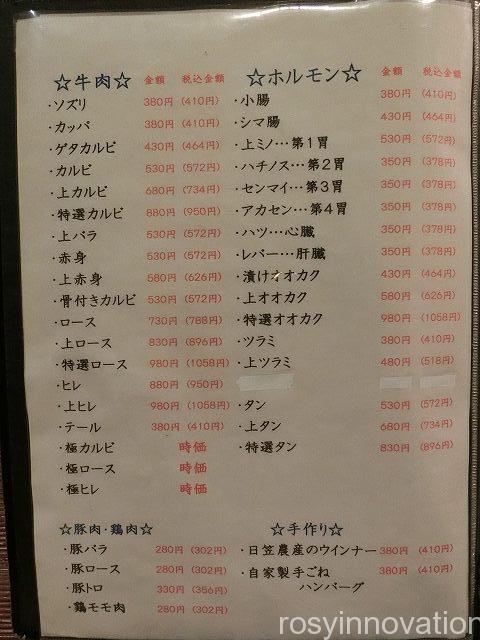 ☆牛肉☆ 金額 税込金額
・ソズリ 380円 (410円)
・カッパ 380円 (410円)
・ゲタカルビ 430円 (464円)
・カルビ 530円 (572円)
・上カルビ 680円 (734円)
・特選カルビ 880円 (950円)
・上バラ 530円 (572円)
・赤身 530円 (572円)
・上赤身 580円 (626円)
・骨付きカルビ 530円 (572円)
・ロース 730円 (788円)
・上ロース 830円 (896円)
・特選ロース 980円 (1058円)
・ヒレ 880円 (950円)
・上ヒレ 980円 (1058円)
・テール 380円 (410円)
・極カルビ 時価
・極ロース 時価
・極ヒレ 時価
☆ホルモン☆ 金額 税込金額
・小腸 380円 (410円)
・シマ腸 430円 (464円)
・上ミノ…第1胃 530円 (572円)
・ハチノス…第2胃 350円 (378円)
・センマイ…第3胃 350円 (378円)
・アカセン…第4胃 350円 (378円)
・ハツ…心臓 350円 (378円)
・レバー…肝臓 350円 (378円)
・漬けオオカク 430円 (464円)
・上オオカク 580円 (626円)
・特選オオカク 980円 (1058円)
・ツラミ 380円 (410円)
・上ツラミ 480円 (518円)
・タン 530円 (572円)
・上タン 680円 (734円)
・特選タン 830円 (896円)
☆豚肉・鶏肉☆
・豚バラ 280円 (302円)
・豚ロース 280円 (302円)
・豚トロ 330円 (356円)
・鶏モモ肉 280円 (302円)
☆手作り☆
・日笠農産のウインナー 380円 (410円)
・自家製手ごね 380円 (410円)
ハンバーグ
rosyinnovation